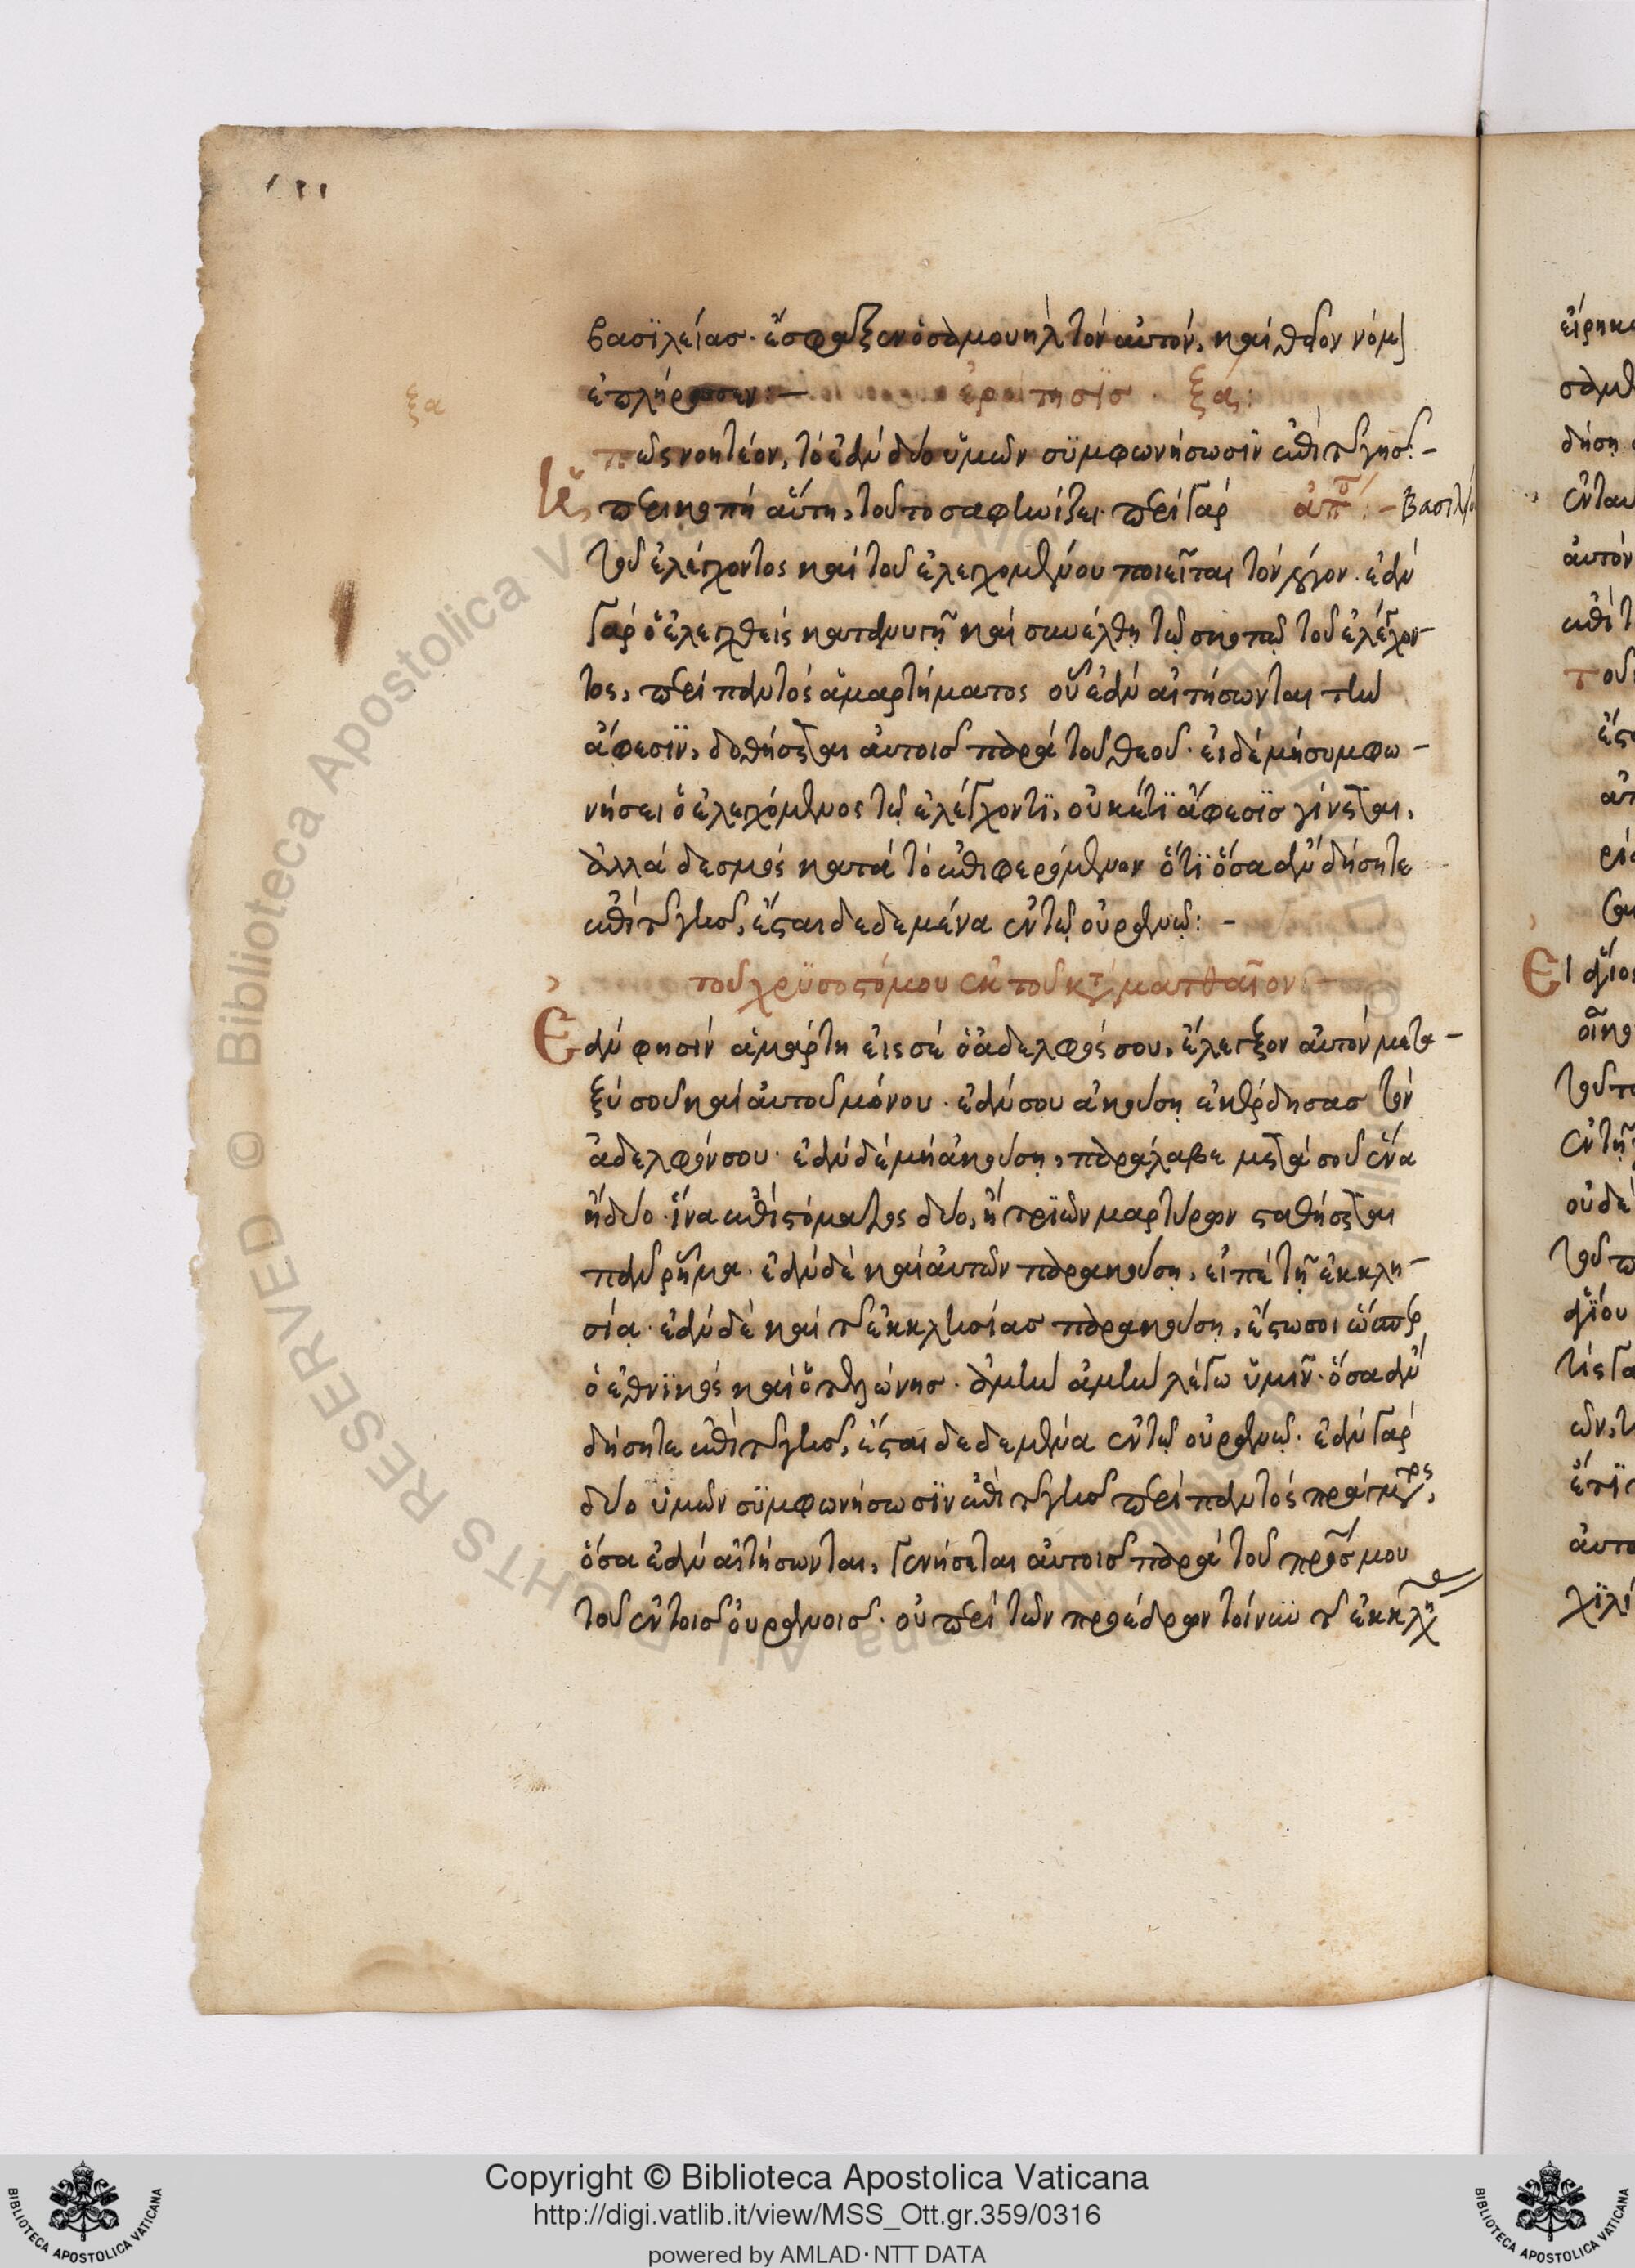 βασϊλείασ· ἔσφαξεν ὁ σαμουὴλ τὸν αὐτόν, καὶ θεῖον νόμον
ἐπλήρωσεν:—
ἐρώτησϊσ ξα:
ξα
πῶς νοητέον, τὸ ἐὰν δύο ὑμῶν σϋμφωνήσωσϊν ἐπὶ τῆς γῆσ:–
περικοπὴ αὕτη, τοῦτο σαφηνίζει· περὶ γὰρ
ἀπο: – Βασιλ
τοῦ ἐλέγχοντος καὶ τοῦ ἐλεγχομένου ποιεῖται τὸν λόγον· ἐὰν
γὰρ ὁ ἐλεγχθεὶς κατανυγῇ καὶ συνέλθῃ τῷ σκοπῷ τοῦ ἐλέγχον
τος, περὶ παντὸς ἁμαρτήματος οὗ ἐὰν αἰτήσωνται τὴν
ἄφεσϊν, δοθήσεται αὐτοῖσ παρὰ τοῦ θεοῦ· εἰ δὲ μὴ συμφω–
νήσει ὁ ἐλεγχόμενος τῷ ἐλέγχοντϊ, οὐκέτϊ ἄφεσϊσ γίνεται,
ἀλλὰ δεσμὸς κατὰ τὸ ἐπιφερόμενον ὅτϊ ὅσα ἂν δήσητε
ἐπὶ τῆς γῆσ, ἔσται δεδεμένα ἐν τῷ οὐρανῷ: –
τοῦ χρϋσοστόμου ἐκ τοῦ κατὰ ματθαῖον
Ἐὰν φησὶν ἁμάρτη εἰς σὲ ὁ ἀδελφός σου, ἔλεγξον αὐτὸν μετα–
ξύ σου καὶ αὐτοῦ μόνου· ἐάν σου ἀκούσῃ ἐκέρδησασ τὸν
ἀδελφόν σου· ἐὰν δὲ μὴ ἀκούσῃ, παράλαβε μετά σοῦ ἕνα
ἢ δύο· ἵνα ἐπὶ στόματος δύο, ἢ τρϊῶν μαρτύρων σταθήσεται
πᾶν ῥῆμα· ἐὰν δὲ καὶ αὐτῶν παρακούσῃ, εἰπὲ τῇ ἐκκλη–
σίᾳ· ἐὰν δὲ καὶ τῆς ἐκκλησίασ παρακούσῃ, ἔστω σοι ὥσπερ
ὁ ἐθνϊκὸς καὶ ὁ τελώνησ· ἀμὴν ἀμὴν λέγω ὑμῖν· ὅσα ἂν
δήσητε ἐπὶ τῆς γῆσ, ἔσται δεδεμένα ἐν τῷ οὐρανῷ· ἐὰν γὰρ
δύο ὑμῶν σϋμφωνήσωσϊν ἐπὶ τῆς γῆσ περὶ παντὸς πράγματος,
ὅσα ἐὰν αἰτήσωνται, γενήσεται αὐτοῖσ παρὰ τοῦ πρσ μου
τοῦ ἐν τοῖσ οὐρανοῖσ· οὐ περὶ τῶν προέδρων τοίνυν τῆς ἐκκλη